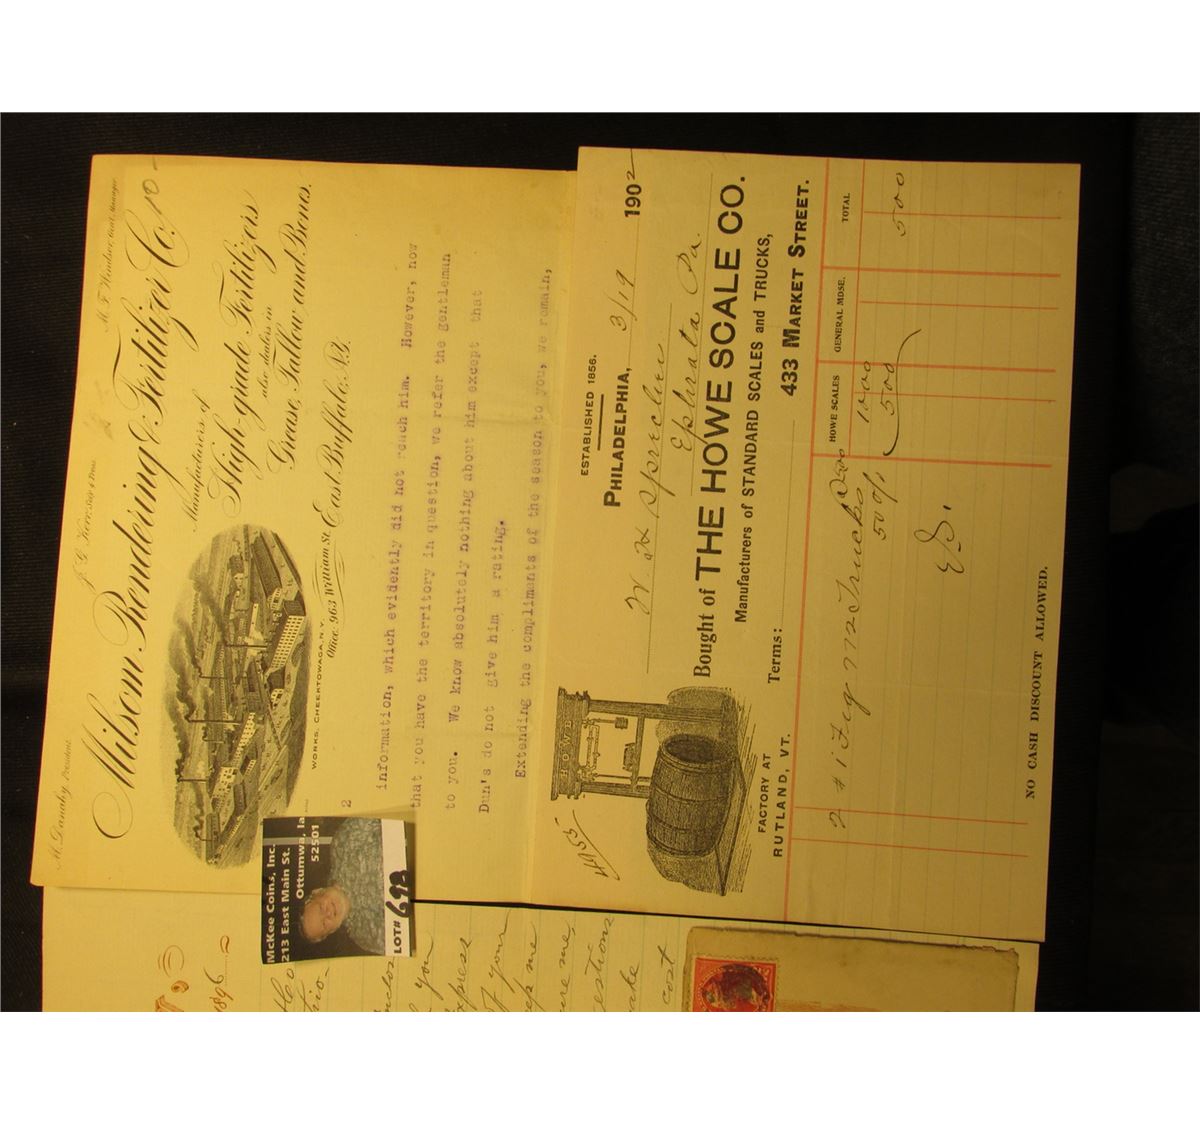 M. Danahy, President. J. G. Kerr, Sec'y & Treas. M. F. Windsor, Gen'l Manager
Milsom Rendering & Fertilizer Co.
Manufacturers of
High-grade Fertilizers
also dealers in
Grease, Tallow and Bones.
WORKS, CHEEKTOWAGA, N.Y.
Office, 963 William St. East Buffalo, N.Y.
2
information, which evidently did not reach him. However, now
that you have the territory in question, we refer the gentleman
to you. We know absolutely nothing about him except that
Dun's do not give him a rating.
Extending the compliments of the season to you, we remain,
ESTABLISHED 1856.
PHILADELPHIA, 3/19 1902
4755
W. H. Sprecher
Ephrata Pa.
HOWE
Bought of THE HOWE SCALE CO.
Manufacturers of STANDARD SCALES and TRUCKS,
FACTORY AT
RUTLAND, VT.
Terms:
433 MARKET STREET.
HOWE SCALES GENERAL MDSE. TOTAL
2 #1 Fig 772 Trucks 500 1000
50% 500 500
NO CASH DISCOUNT ALLOWED.
McKee Coins, Inc.
213 East Main St.
Ottumwa, Ia
52501
LOT# 692
1896
you
express
of your
me
me,
cost